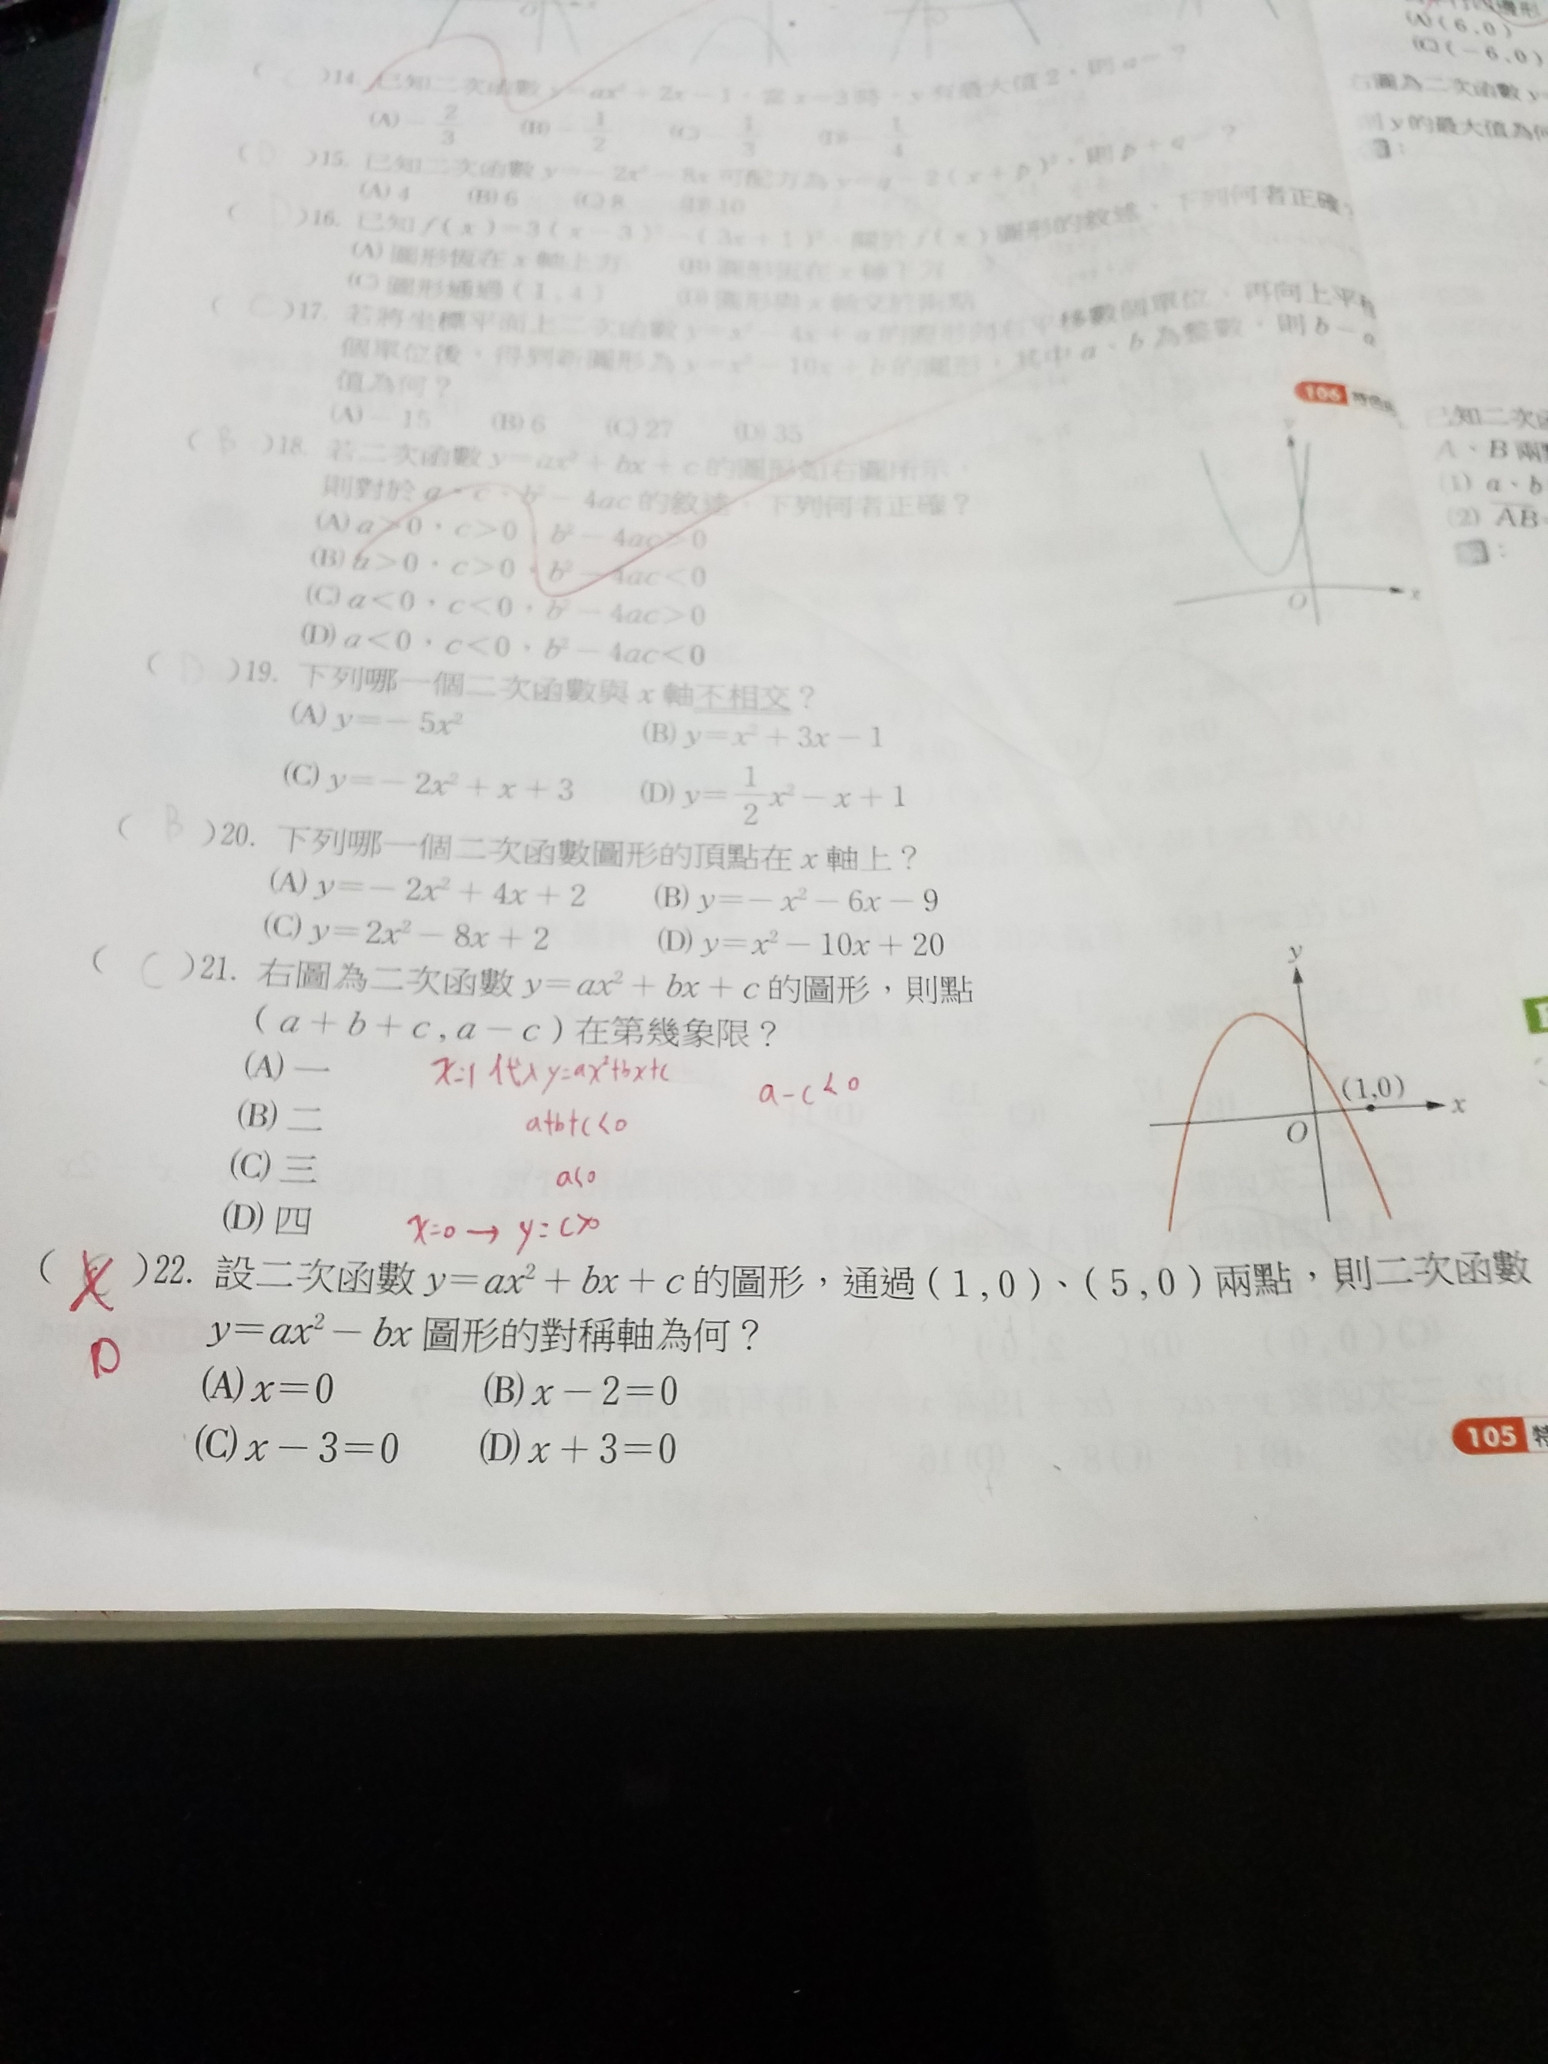 (A)(6,0)
(C)(－6,0)
右圖為二次函數 y
y的最大值為何
:
)14. 已知二次函數 y＝ax²＋2x－1，當 x＝3時，y 有最大值 2，則 a＝？
(A)－2/3 (B)－1/2 (C)－1/3 (D)－1/4
( D )15. 已知二次函數 y＝－2x²－8x 可配方為 y＝q－2(x＋p)²，則 p＋q＝？
(A) 4 (B) 6 (C) 8 (D) 10
( D )16. 已知 f(x)＝3(x－3)²－(3x＋1)²，關於 f(x) 圖形的敘述，下列何者正確？
(A) 圖形恆在 x 軸上方 (B) 圖形恆在 x 軸下方
(C) 圖形通過(1,4) (D) 圖形與 x 軸交於兩點
( C )17. 若將坐標平面上二次函數 y＝x²－4x＋a 的圖形向右平移數個單位，再向上平移
個單位後，得到新圖形為 y＝x²－10x＋b 的圖形，其中 a、b 為整數，則 b－a
值為何？
(A)－15 (B) 6 (C) 27 (D) 35
106
( B )18. 若二次函數 y＝ax²＋bx＋c 的圖形如右圖所示，
則對於 a、c、b²－4ac 的敘述，下列何者正確？
(A) a>0，c>0，b²－4ac>0
(B) a>0，c>0，b²－4ac<0
(C) a<0，c<0，b²－4ac>0
(D) a<0，c<0，b²－4ac<0
y
O
x
已知二次函
A、B 兩
(1) a、b
(2) AB
:
( D )19. 下列哪一個二次函數與 x 軸不相交？
(A) y＝－5x² (B) y＝x²＋3x－1
(C) y＝－2x²＋x＋3 (D) y＝1/2x²－x＋1
( B )20. 下列哪一個二次函數圖形的頂點在 x 軸上？
(A) y＝－2x²＋4x＋2 (B) y＝－x²－6x－9
(C) y＝2x²－8x＋2 (D) y＝x²－10x＋20
( C )21. 右圖為二次函數 y＝ax²＋bx＋c 的圖形，則點
(a＋b＋c,a－c)在第幾象限？
(A) 一
(B) 二
(C) 三
(D) 四
x=1 代入 y=ax²+bx+c
a+b+c<0
a<0
x=0→ y=c>0
a-c<0
y
(1,0)
x
O
( )22. 設二次函數 y＝ax²＋bx＋c 的圖形，通過(1,0)、(5,0)兩點，則二次函數
D
y＝ax²－bx 圖形的對稱軸為何？
(A) x＝0 (B) x－2＝0
(C) x－3＝0 (D) x＋3＝0
105 特